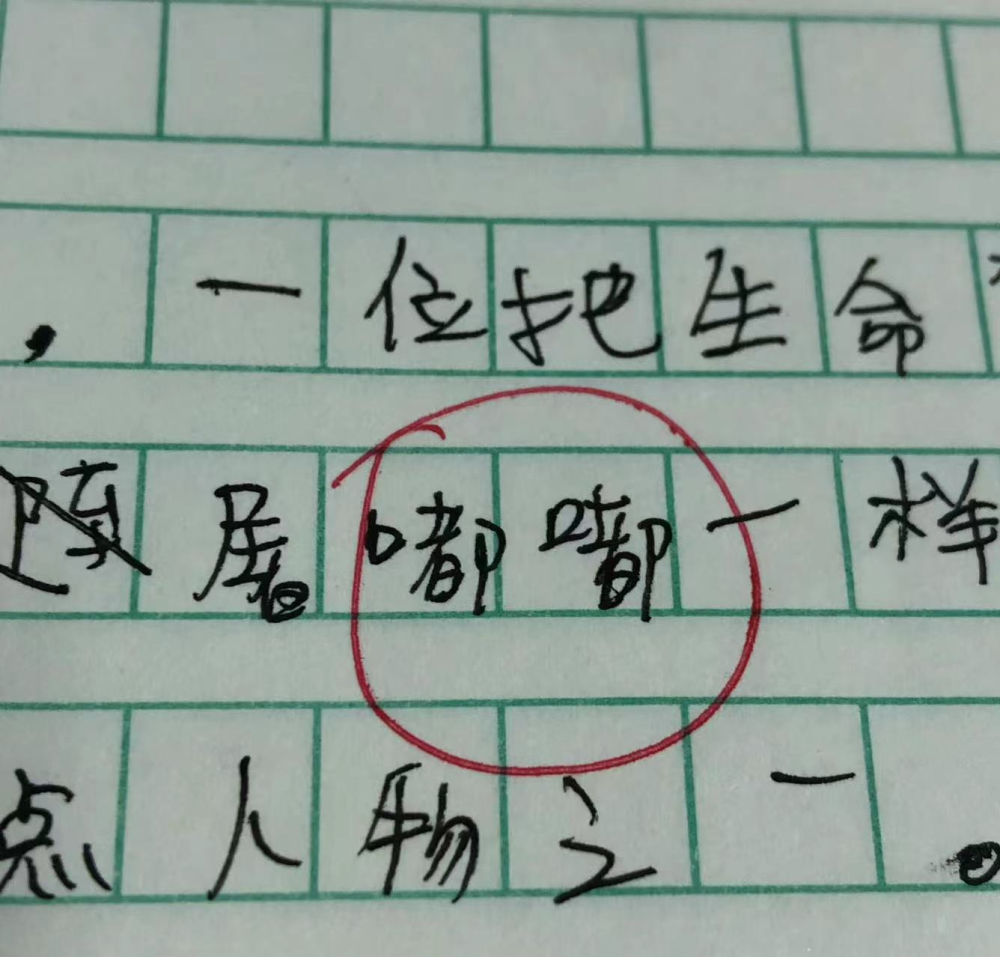 ，一位把生命
嘟嘟一样
点人物之一。